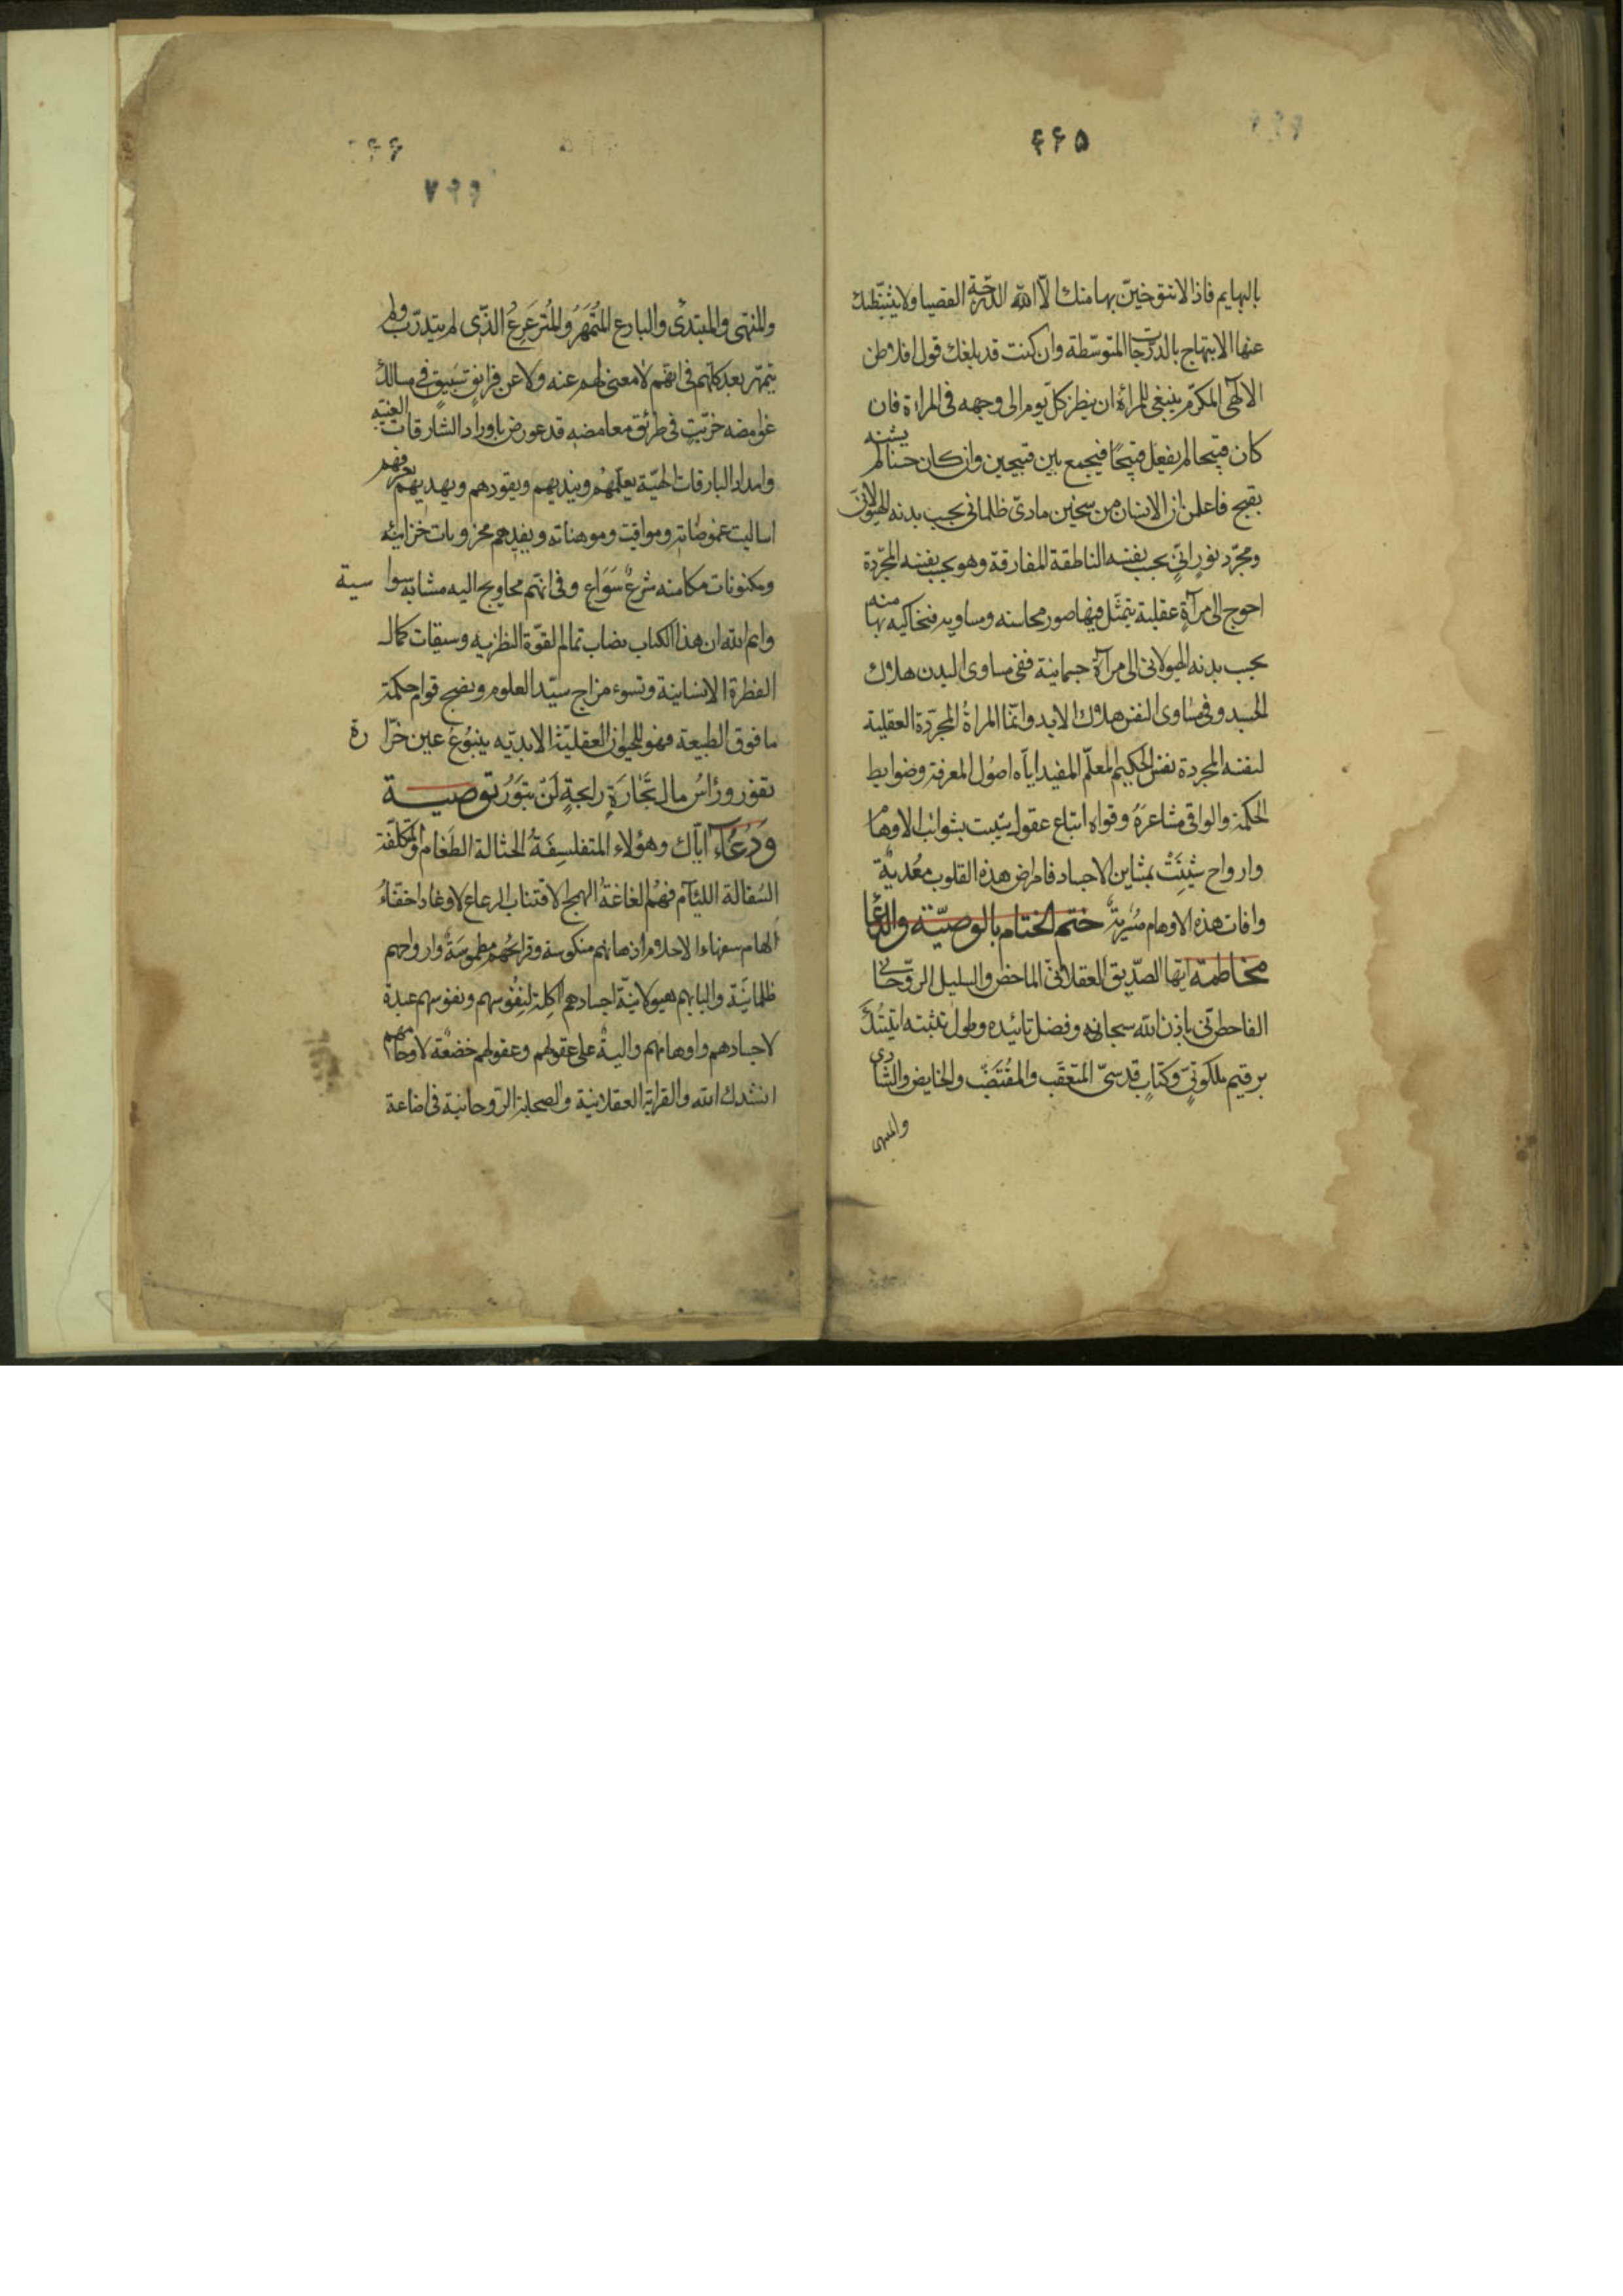 ۶۶۵
بالبهايم فاذا لا تتوخين بها منك الا الله الدرجة القصيا ولا يثبطنك
عنها الابتهاج بالدرجات المتوسطة وان كنت قد بلغك قول افلاطن
الالهى المكرم ينبغى للمرأة ان ينظر كل يوم الى وجهه فى المراة فان
كان قبيحا لم يفعل قبيحًا فيجمع بين قبيحين وان كان حسنا لم يشنه
بقبح فاعلمن ان الانسان من سخين مادىّ ظلمانى بحسب بدنه الهيولانى
ومجرّد نورانىّ بحسب نفسه الناطقة المفارقة وهو بحسب نفسه المجرّدة
احوج الى مرآةٍ عقلية يتمثّل فيها صور محاسنه ومساويه بها منه
بحسب بدنه الهيولانى الى مرآة جسمانية ففى مساوى البدن هلاك
الجسد وفى مساوى النفس هلاك الابد وانّما المراةُ المجرّدة العقلية
لنفسه المجردة نفس الحكيم المعلّم المفيد اياه اصُول المعرفة وضوابط
الحكمة والواقى مشاعرَهُ وقواه اتباع عقول بشوائب الاوهام
وارواح شينَتْ بمشاين الاجساد فامراض هذه القلوب معُدية
وافات هذه الاوهام مسُرية ختم الختام بالوصيّة والدعا
مخاطبة ايّها الصّديق العقلانىّ الماحض والسليل الرّوحانى
الفاحط باذن الله سبحانه وفضل تائيده وطول
برقيم ملكوتىّ وكتابٍ قدسىّ المتعقّب والمقتضّب والخايض والشادى
والمنتهى
۶۶۶
۷۶۶
والمنتهى والمبتدئ والبارع المتُمَهّرُ والمُترَعرِعُ الذّى لم يتدرّب ولم
يتمهّر بعد كلهم فى انهّم لا معنى لهم عنه ولا عن فى مسالك
غوامضه خرّيتٍ فى طرائق معامضه قد عورض باوراد الشارقات الغيبية
وامداد البارقات الهيّة يعلّمهُم وينديهم ويقودهم ويهديهم
اساليت غموضاته ومواقيت وموهناته ويفيدهم مخزونات خزائنه
ومكنونات مكامنه شرعٌ سَوَاع وفى انهّم محاويج اليه مشابه سواسية
وايم الله ان هذا الكتاب نصاب تمام القوّة النظريه وسيقات كمال
الفطرة الانسانية وتسوء مزاج سيّد العلوم ونضج قوام حكمة
ما فوق الطبيعة فهو للحيوان العقليّة الابديّه ينبُوعُ عين خرّارة
تفور ورَأسُ مال تجّارَةٍ رابحةٍ لَنْ تبوَرُ توصيـة
ودَعُاء ايّاك وهؤلاء المتفلسِفَةُ الحثالة الطَغام والمتكلّفة
السُفالة اللئآم فهُم الغاغةُ الهمج الرعاع الاوغاد اخفّاءُ
الهام سفهاء الاحلام اذهانهم منكوسة وقرائحُهم مطموسَةٌ وارواحهم
ظلمانيّة والبابهم هيولانيّة اجسادهم اكِلة لنفُوسهم ونفوسهم عبدة
لاجسادهم واوهامهم واليةٌ على عقولهم وعقولهم خضعْة لاوهامهم
انشدك الله والقرابة العقلانية والصحابة الرّوحانية فى اضاعة